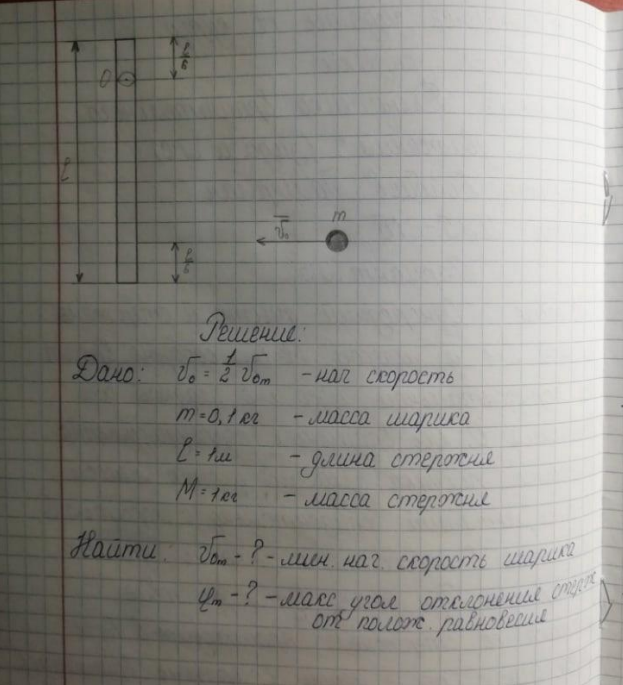 l/6
O
l
m
v̅₀
l/6
Решение:
Дано: v₀ = 1/2 v₀ₘ - нач скорость
m = 0,1 кг - масса шарика
l = 1м - длина стержня
M = 1кг - масса стержня
Найти: v₀ₘ - ? - мин. нач. скорость шарика
φₘ - ? - макс угол отклонения стерж
от полож. равновесия